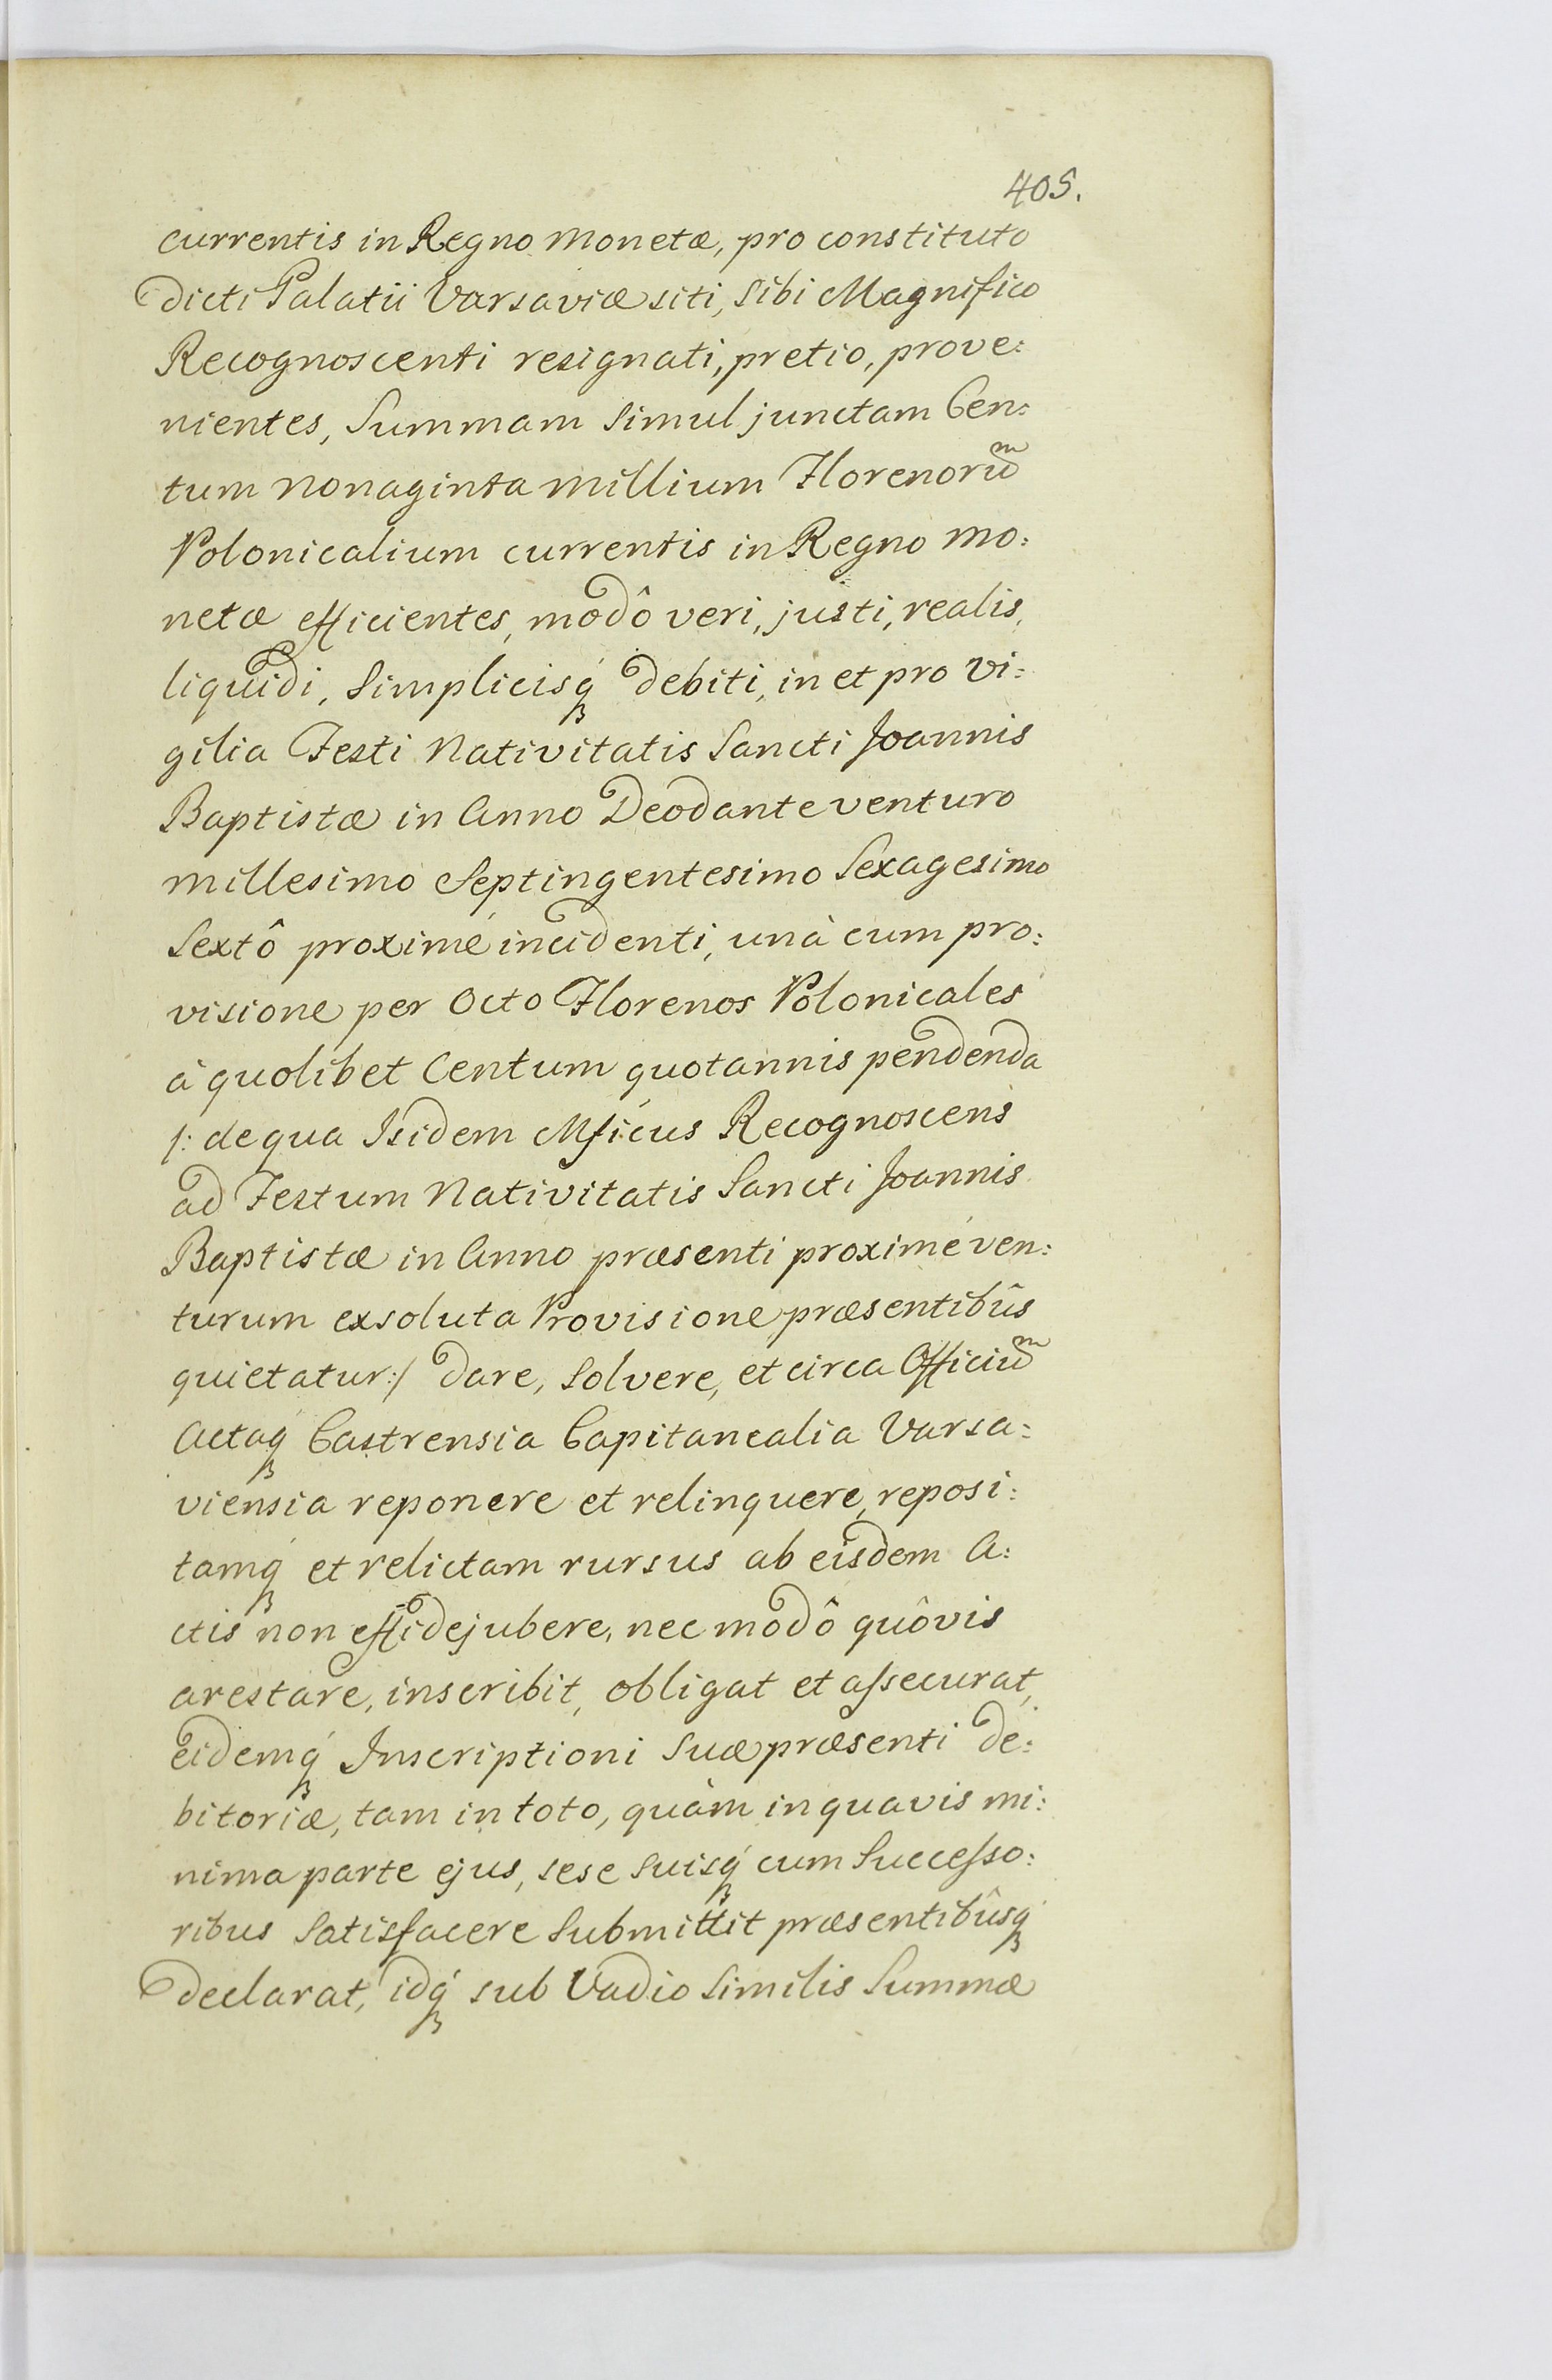 405.
currentis in Regno Monetæ, pro constituto
dicti Palatii Varsaviæ siti, Sibi Magnifico
Recognoscenti resignati, pretio, prove:
nientes, Summam Simul junctam Cen:
tum Nonaginta Millium Florenorũm
Polonicalium currentis in Regno Mo:
netæ efficientes, modô veri, justi, realis,
liquidi, Simplicisq́ꝫ debiti, in et pro Vi:
gilia Festi Nativitatis Sancti Joannis
Baptistæ in Anno Deo dante venturo
Millesimo Septingentesimo Sexagesimo
Sextô proximé incidenti, unà cum pro:
visione per Octo Florenos Polonicales
à quolibet Centum quotannis pendenda
/: de qua Isidem Mficus Recognoscens
ad Festum Nativitatis Sancti Joannis
Baptistæ in Anno præsenti proximé ven:
turum exsoluta Provisione præsentibûs
quietatur :/ dare, Solvere, et circa Officiũm
Actaq́ꝫ Castrensia Capitanealia Varsa:
viensia reponere et relinquere, reposi:
tamq́ꝫ et relictam rursus ab eisdem A:
ctis non effidejubere, nec modô quôvis
arestare, inscribit, obligat et assecurat,
eidemq́ꝫ Inscriptioni Suæ præsenti de:
bitoriæ, tam in toto, quàm in quavis mi:
nima parte ejus, sese Suisq́ꝫ cum Successo:
ribus Satisfacere Submittit præsentibûsq́ꝫ
declarat, idq́ꝫ sub Vadio Similis Summæ